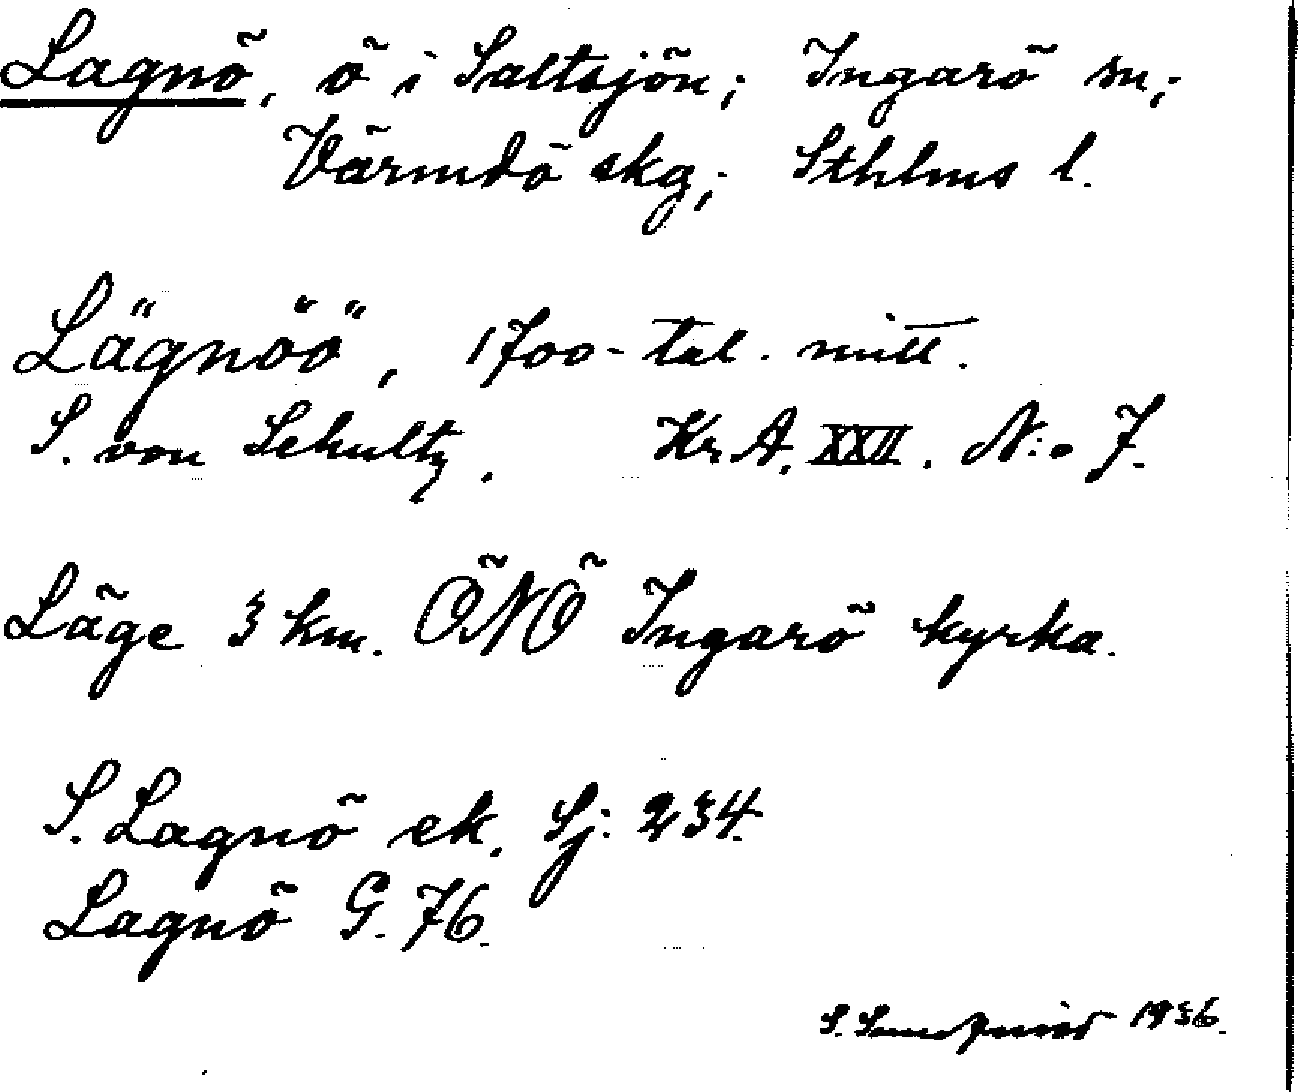 Lagnö, ö i Saltsjön; Ingarö sn;
Värmdö skg; Sthlms l.
Lägnöö, 1700-tal. mitt.
S. von Schultz. Kr. A. XXII. N:o 7.
Läge 3 km. ÖNÖ Ingarö kyrka.
S. Lagnö ek. Sj: 234.
Lagnö G. 76.
S. 1936.